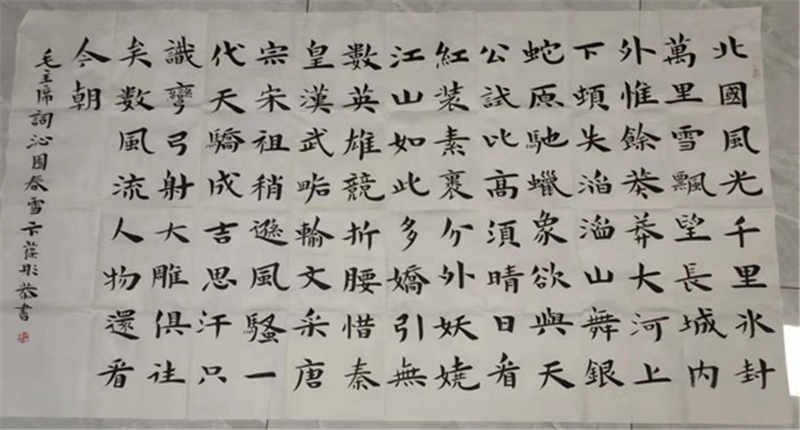 北國風光千里氷封
萬里雪飄望長城内
外惟餘莽莽大河上
下頓失滔滔山舞銀
蛇原馳蠟象欲與天
公試比高須晴日看
紅装素裹分外妖嬈
江山如此多嬌引無
數英雄競折腰惜秦
皇漢武略輸文采唐
宗宋祖稍遜風騷一
代天驕成吉思汗只
識彎弓射大雕俱往
矣數風流人物還看
今朝
毛主席詞沁園春雪恭書